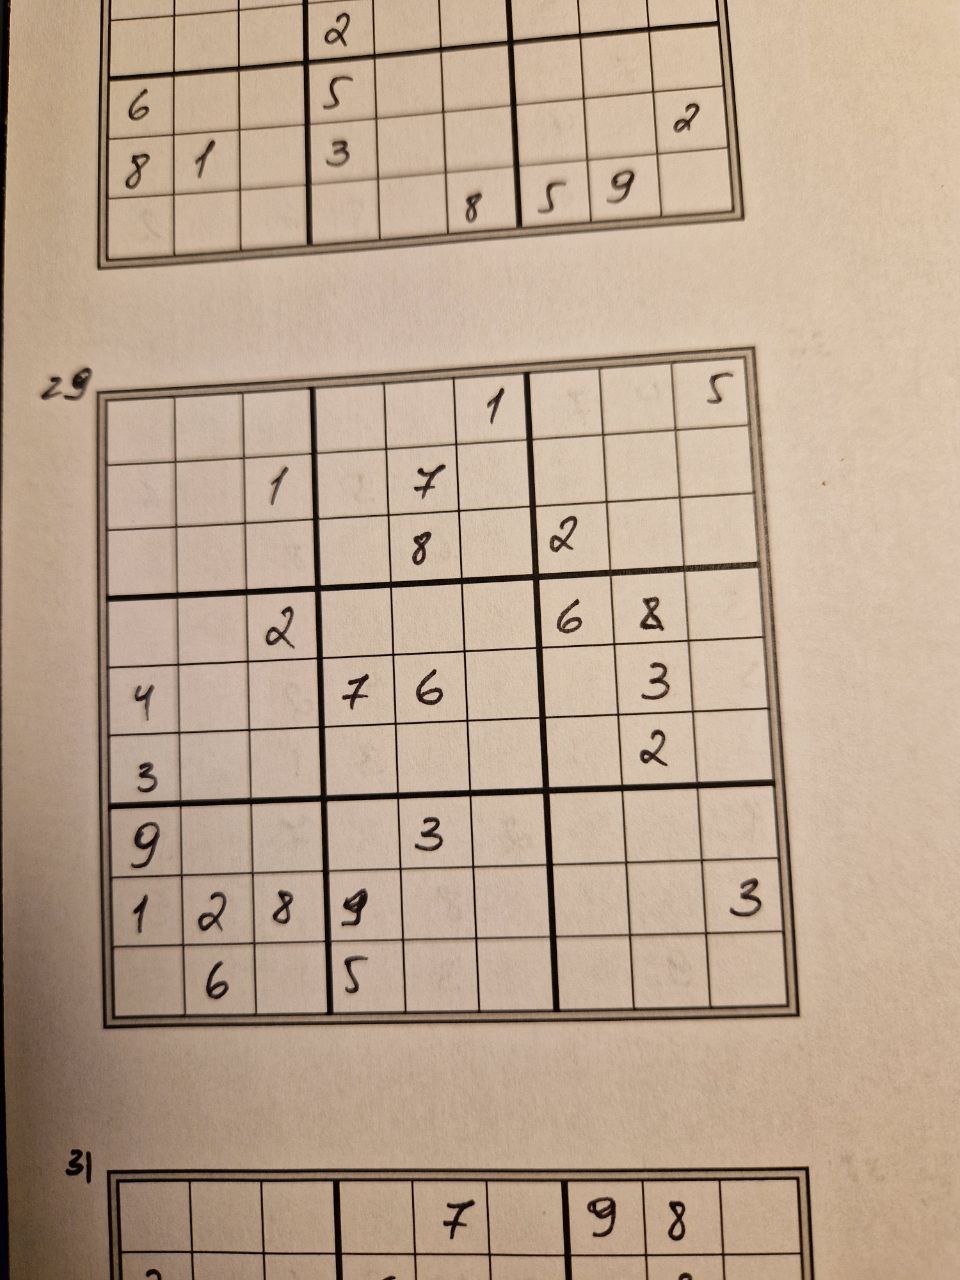 2
6 5
8 1 3 2
8 5 9
29
1 5
1 7
8 2
2 6 8
4 7 6 3
3 2
9 3
1 2 8 9 3
6 5
31
7 9 8